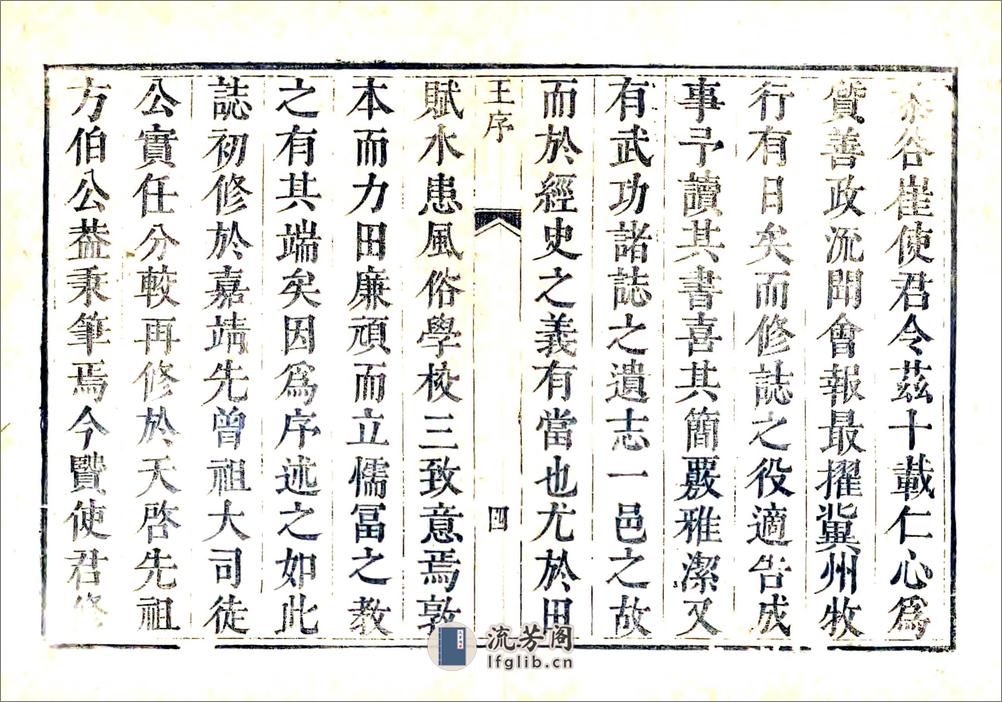 谷崔使君令茲十載仁心爲
質善政流聞會報最擢冀州牧
行有日矣而修誌之役適告成
事予讀其書喜其簡覈雅潔又
有武功諸誌之遺志一邑之故
而於經史之義有當也尤於田
王序
四
賦水患風俗學校三致意焉敦
本而力田廉頑而立懦冨之教
之有其端矣因爲序述之如此
誌初修於嘉靖先曾祖大司徒
公實任分較再修於天啓先祖
方伯公葢秉筆焉今賢使君修
流芳阁
lfglib.cn